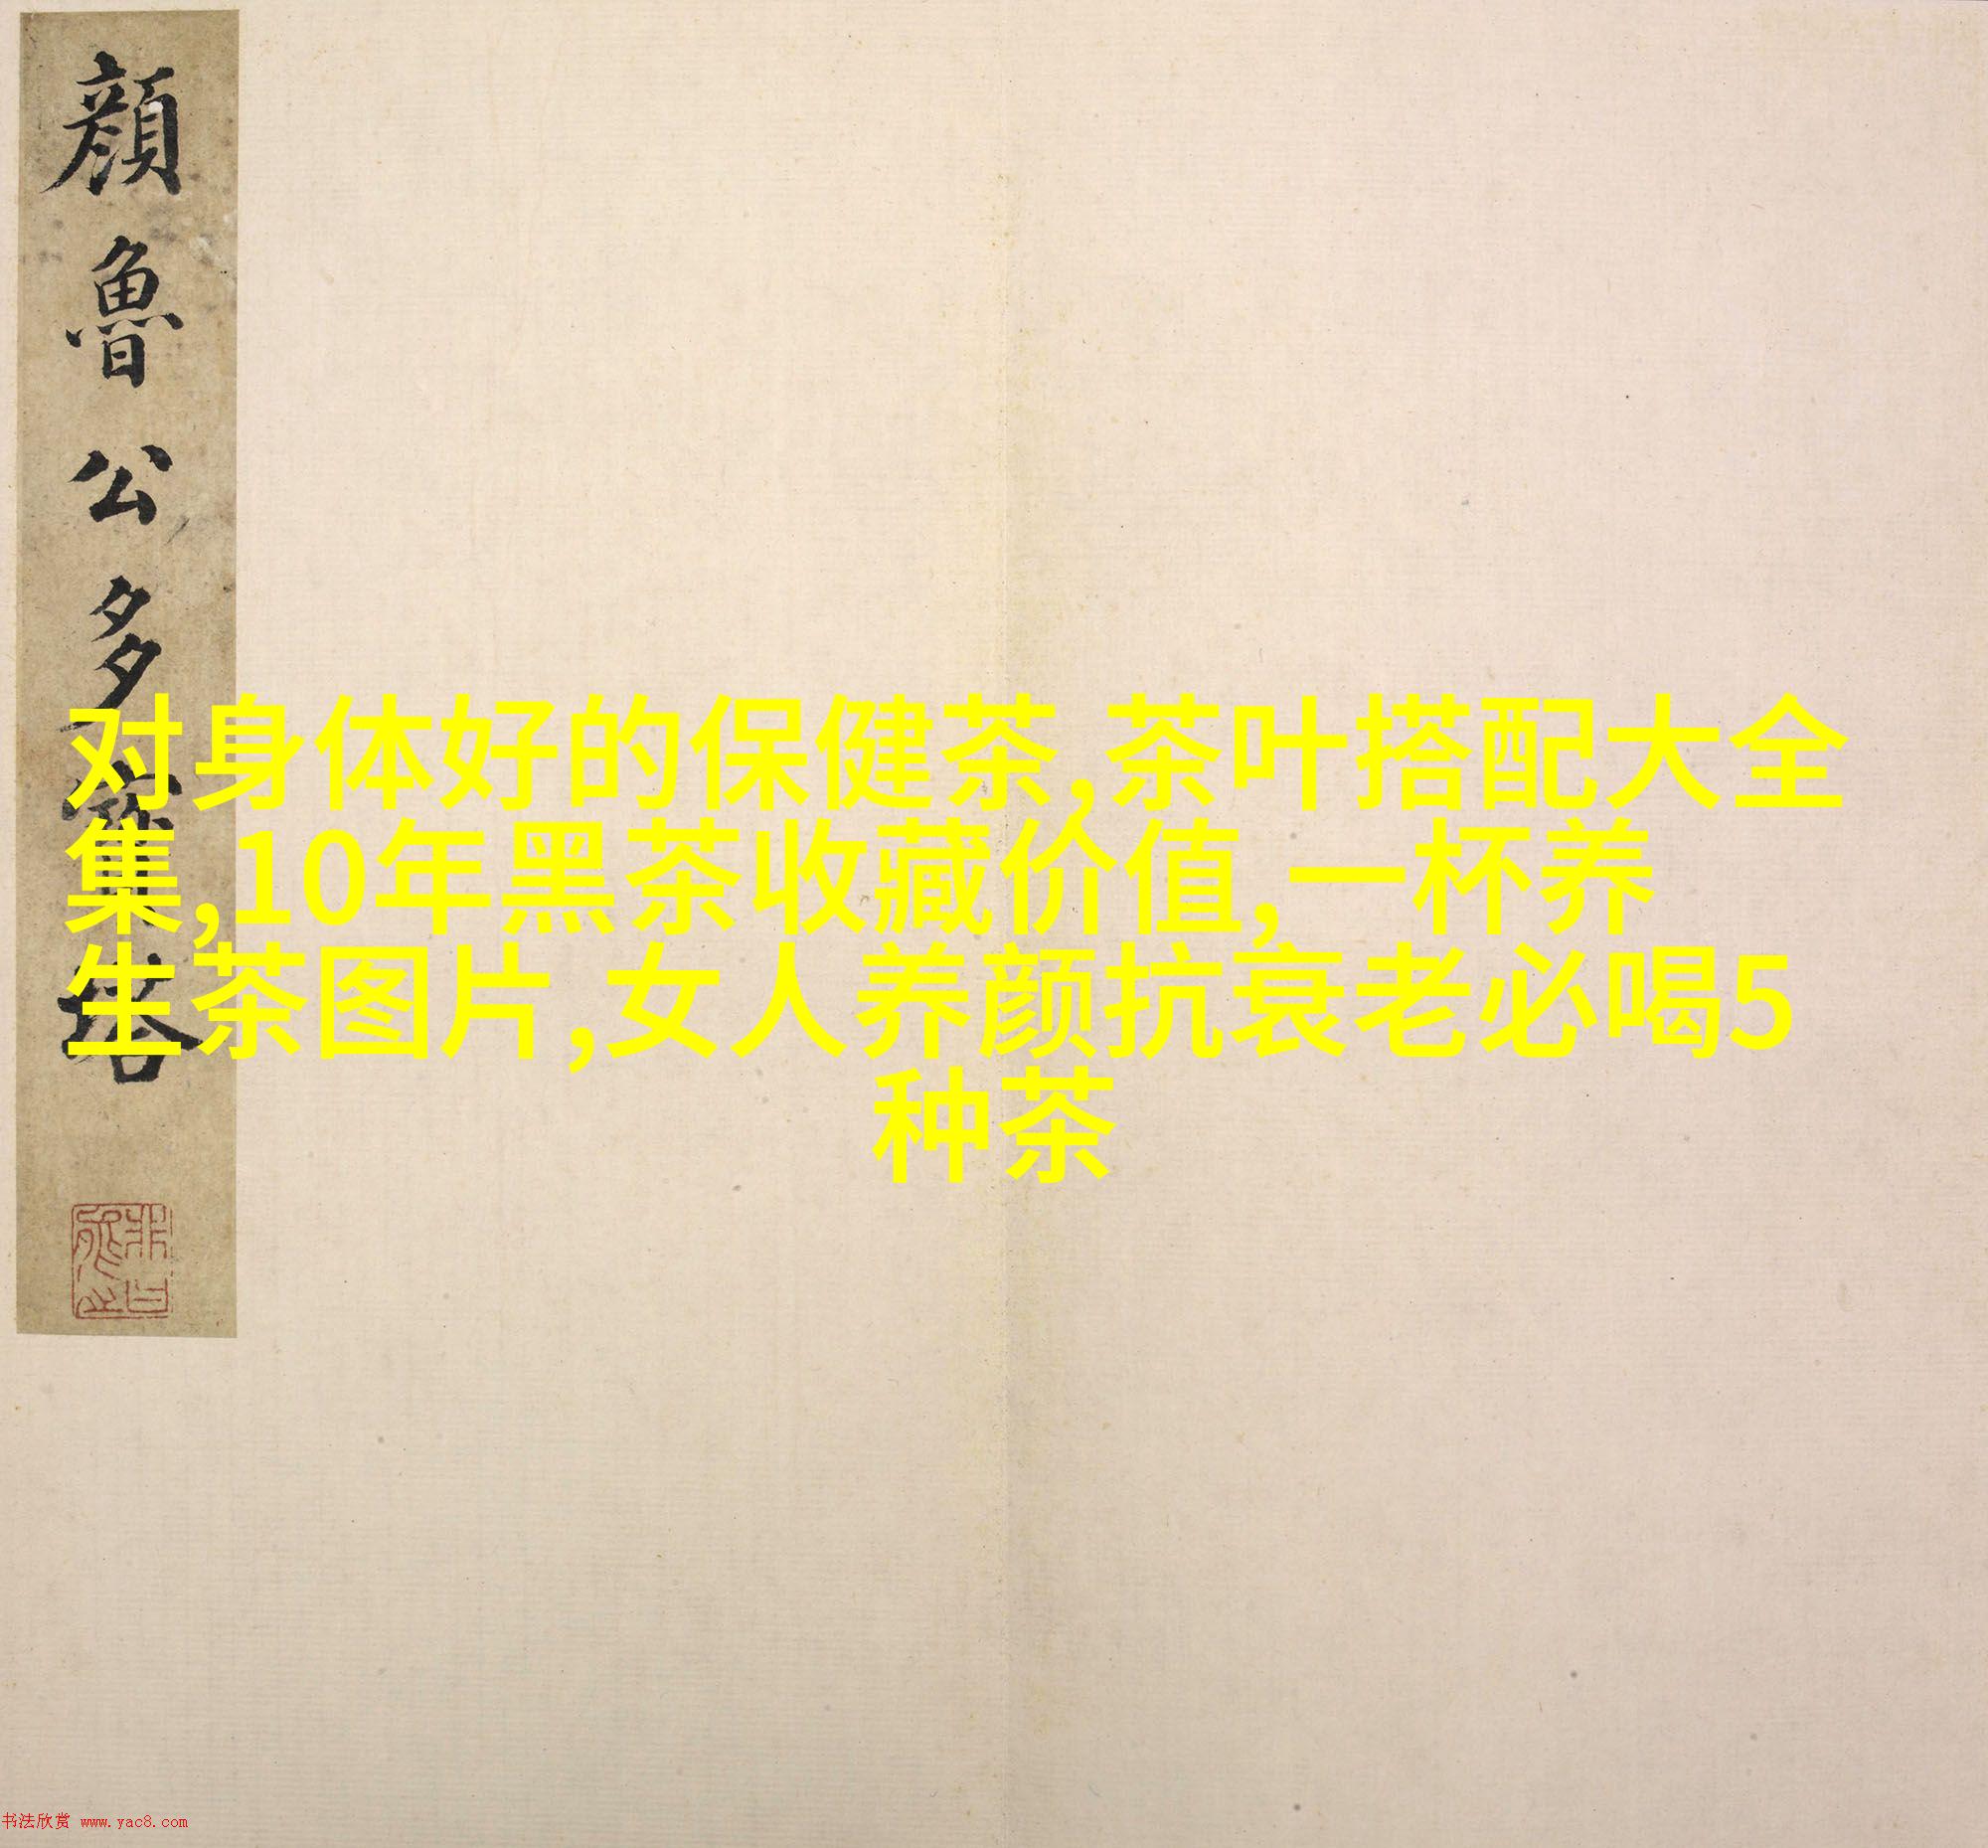 顔魯公多寶塔
对身体好的保健茶,茶叶搭配大全
集,10年黑茶收藏价值,一杯养
生茶图片,女人养颜抗衰老必喝5
种茶
书法欣赏 www.yac8.com